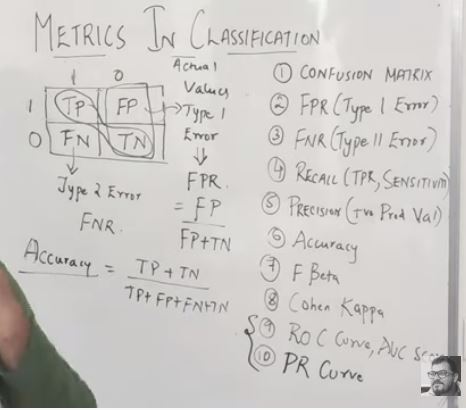 METRICS IN CLASSIFICATION
1 0 Actual Values
1 TP FP → Type 1 Error
0 FN TN
Type 2 Error
FNR.
FPR.
= FP
FP+TN
Accuracy = TP + TN
TP+FP+FN+TN
① CONFUSION MATRIX
② FPR (Type I Error)
③ FNR (Type II Error)
④ RECALL (TPR, SENSITIVITY)
⑤ PRECISION (+ve Pred Val)
⑥ Accuracy
⑦ F Beta
⑧ Cohen Kappa
⑨ ROC Curve, AUC
⑩ PR Curve